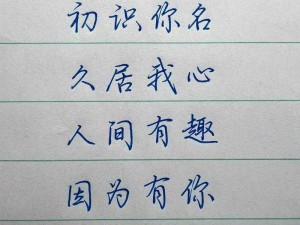 初识你名
久居我心
人间有趣
因为有你